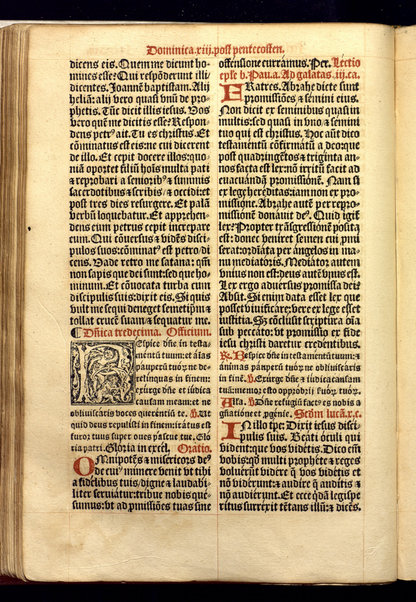 Dominica.xiij.post pentecosten.
dicens eis. Quem me dicunt ho-
mines esse? Qui respōderunt illi
dicentes. Joannē baptistam. Alij
heliā: alij vero quasi vnū de pro-
phetis. Tūc dicit illis iesus. Vos
vero quē me dicitis esse? Respon-
dens petrꝰ ait. Tu es christus. Et
cōminatus est eis: ne cui dicerent
de illo. Et cepit docere illos: quo-
niā oportet filiū hoīs multa pati
⁊ reprobari a senioribꝰ ⁊ summis
sacerdotibus ⁊ scribis/ ⁊ occidi: et
post tres dies resurgere. Et palā
verbū loquebatur. Et apprehen-
dens eum petrus cepit increpare
eum. Qui cōuersus ⁊ vidēs disci-
pulos suos: cōminatꝰ est petro di-
cens. Vade retro me satana: qm̄
non sapis que dei sunt: sed que ho-
minum. Et cōuocata turba cum
discipulis suis: dixit eis. Si quis
vult me sequi deneget semetipm̄ ⁊
tollat crucē suam ⁊ sequatur me.
¶ Dn̄ica tredecima. Officium.
REspice dn̄e in testa-
mentū tuum: et aīas
pauperū tuoꝝ ne de-
relinquas in finem:
exurge dn̄e ⁊ iudica
causam meam: et ne
obliuiscaris voces querentiū te. Ps Vt
quid deus repulisti in finem: iratus est
furor tuus super oues pascue tue. Glo-
ria patri. Gloria in excel. Oratio.
OMnipotēs ⁊ misericors deꝰ
de cuiꝰ munere venit vt tibi
a fidelibus tuis/digne ⁊ laudabi-
liter seruiatur: tribue nobis que-
sumus: vt ad pmissiōes tuas sine
offensione curramus. Per. Lectio
epſe b. Pau.a. Ad galatas.iij.ca.
FRatres. Abrahe dicte sunt
ꝓmissiōes ⁊ semini eius.
Non dicit et seminibus quasi in
multis: sed quasi in vno ⁊ semini
tuo qui est christus. Hoc aūt dico
testamentū cōfirmatū a deo: que
post quadringētos ⁊ triginta an-
nos facta est lex: nō irritū facit ad
euacuandā ꝓmissionē. Nam si
ex lege hereditas: iam non ex pro-
missione. Abrahe autē per repro-
missionē donauit deꝰ. Quid igit̄
lex? Propter trāsgressionē posita
est: donec veniret semen cui pmi
serat: ordiāta per āngelos in ma-
nu mediatoris. Mediatoꝛ autem
vnius non est: deus autē vnus est.
Lex ergo aduersus promissa dei?
Absit. Si enim data esset lex que
posset viuificare: vere ex lege esset
iustitia. Sꝫ cōclusit scriptura oīa
sub peccato: vt promissio ex fide
iesu christi daretur credentibus.
Respice dn̄e in testamentū tuum: ⁊
animas pauperū tuoꝝ ne obliuiscaris
in finē. Exurge dn̄e: ⁊ iudica causam
tuā: memor esto opprobrij seruoꝝ tuoꝝ.
Alla. Dn̄e refugiū factꝰ es nobis a
gn̄atione et ꝓgenie. Scdm lucā.x.c.
IN illo tpe: Dixit iesus disci-
pulis suis. Beati oculi qui
vident: que vos videtis. Dico em̄
vobis: qꝙ multi prophete ⁊ reges
voluerūt videre q̄ vos videtis et
nō viderunt: ⁊ audire q̄ auditis ⁊
nō audierunt. Et ecce qdā legispe
ritus surrexit tētans illū: ⁊ dicēs.